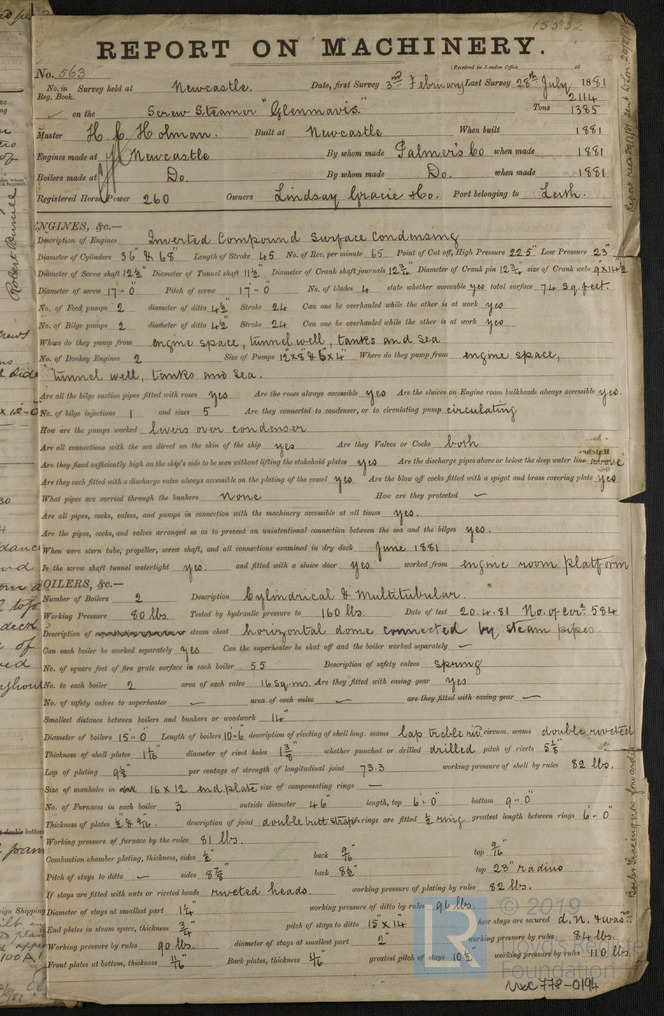 15332
REPORT ON MACHINERY.
No. 563
(Received in London Office 18
No. in Survey held at Newcastle. Date, first Survey 3rd February Last Survey 28th July 1881
Reg. Book.
2114
on the Screw Steamer "Glenmavis." Tons 1385
Master H. C. Holman. Built at Newcastle When built 1881
Engines made at Newcastle By whom made Palmer's Co when made 1881
Boilers made at Do. By whom made Do. when made 1881
Registered Horse Power 260 Owners Lindsay Gracie & Co. Port belonging to Leith.
ENGINES, &c.—
Description of Engines Inverted Compound Surface Condensing
Diameter of Cylinders 36" & 68" Length of Stroke 45 No. of Rev. per minute 65 Point of Cut off, High Pressure 22.5" Low Pressure 23"
Diameter of Screw shaft 12½" Diameter of Tunnel shaft 11½ Diameter of Crank shaft journals Diameter of Crank pin size of Crank webs 9 x 14½
Diameter of screw 17'-0" Pitch of screw 17'-0" No. of blades 4 state whether moveable yes total surface 74 sq. feet.
No. of Feed pumps 2 diameter of ditto 4½" Stroke 24 Can one be overhauled while the other is at work yes
No. of Bilge pumps 2 diameter of ditto 4½" Stroke 24 Can one be overhauled while the other is at work yes
Where do they pump from engine space, tunnel well, tanks and sea
No. of Donkey Engines 2 Size of Pumps 12x8 & 6x4" Where do they pump from engine space,
tunnel well, tanks and sea.
Are all the bilge suction pipes fitted with roses yes Are the roses always accessible yes Are the sluices on Engine room bulkheads always accessible yes.
No. of bilge injections 1 and sizes 5 Are they connected to condenser, or to circulating pump circulating
How are the pumps worked levers over condenser
Are all connections with the sea direct on the skin of the ship yes Are they Valves or Cocks both
Are they fixed sufficiently high on the ship's side to be seen without lifting the stokehold plates yes Are the discharge pipes above or below the deep water line above
Are they each fitted with a discharge valve always accessible on the plating of the vessel yes Are the blow off cocks fitted with a spigot and brass covering plate yes
What pipes are carried through the bunkers none How are they protected —
Are all pipes, cocks, valves, and pumps in connection with the machinery accessible at all times yes.
Are the pipes, cocks, and valves arranged so as to prevent an unintentional connection between the sea and the bilges yes.
When were stern tube, propeller, screw shaft, and all connections examined in dry dock June 1881
Is the screw shaft tunnel watertight yes. and fitted with a sluice door yes. worked from engine room platform
BOILERS, &c.—
Number of Boilers 2 Description Cylindrical & Multitubular.
Working Pressure 80 lbs. Tested by hydraulic pressure to 160 lbs. Date of test 20.4.81 No. of Cer. 584
Description of steam chest horizontal dome connected by steam pipes.
Can each boiler be worked separately yes Can the superheater be shut off and the boiler worked separately —
No. of square feet of fire grate surface in each boiler 55 Description of safety valves spring
No. to each boiler 2 area of each valve 16 sq. ins. Are they fitted with easing gear yes
No. of safety valves to superheater — area of each valve — are they fitted with easing gear —
Smallest distance between boilers and bunkers or woodwork 14"
Diameter of boilers 15'-0 Length of boilers 10-6 description of riveting of shell long. seams lap treble riv circum. seams double riveted
Thickness of shell plates 1 1/16 diameter of rivet holes 1⅜" whether punched or drilled drilled pitch of rivets 5⅛"
Lap of plating 9⅛" per centage of strength of longitudinal joint 73.3 working pressure of shell by rules 82 lbs.
Size of manholes in 16 x 12 end plate size of compensating rings —
No. of Furnaces in each boiler 3 outside diameter 46" length, top 6'-0" bottom 9'-0"
Thickness of plates ½ & 9/16 description of joint double butt straps rings are fitted ½ ring greatest length between rings 6'-0"
Working pressure of furnace by rules 81 lbs.
Combustion chamber plating, thickness, sides ½" back 9/16" top 9/16"
Pitch of stays to ditto — sides 8⅞" back 8½" top 23" radius
If stays are fitted with nuts or riveted heads riveted heads. working pressure of plating by rules 82 lbs.
Diameter of stays at smallest part 1¼" working pressure of ditto by rules 96 lbs.
End plates in steam space, thickness ¾" pitch of stays to ditto 15" x 14" how stays are secured d.n. & was.
Working pressure by rules 90 lbs. diameter of stays at smallest part 2" working pressure by rules 84 lbs.
Front plates at bottom, thickness 11/16" Back plates, thickness greatest pitch of stays 10½" working pressure by rules 110 lbs.
© 2019
LR
Lloyd's Register
Foundation
WRC 778-0194